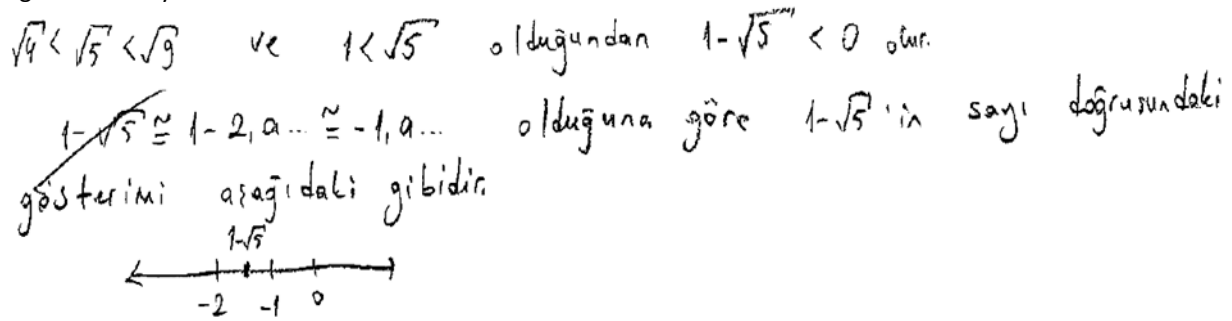 √4 < √5 < √9 ve 1 < √5 olduğundan 1-√5 < 0 olur.
1-√5 ≅ 1-2,a... ≅ -1,a... olduğuna göre 1-√5'in sayı doğrusundaki
gösterimi aşağıdaki gibidir.
1-√5
-2 -1 0